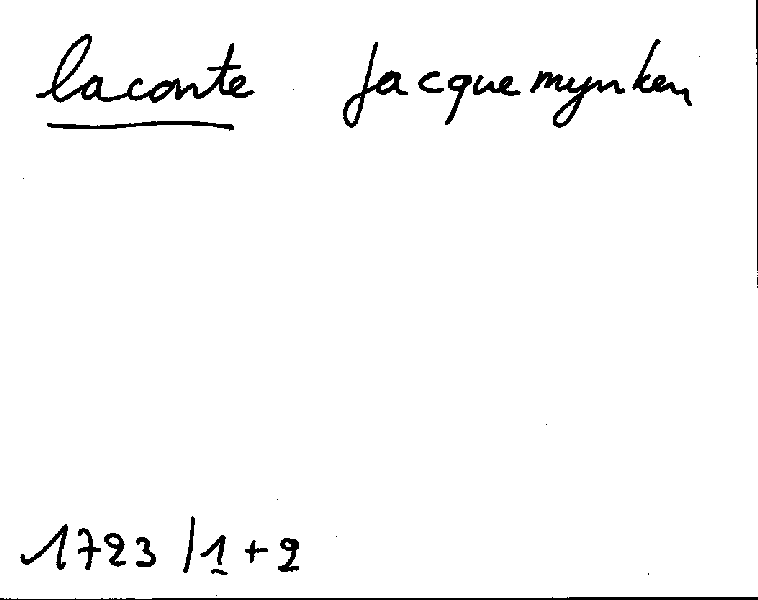 laconte Jacquemynken
1723 | 1 + 2